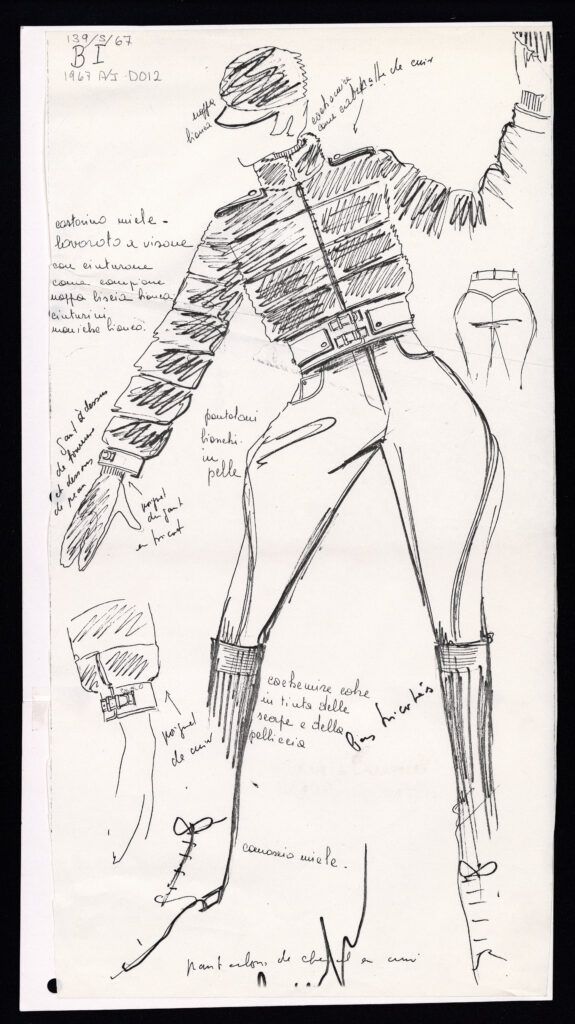 139/S/67
BI
1967 A/I D012
nappa
bianca
cachemire
épaulette de cuir
castorino miele -
lavorato a visone
con cinturone
come campione
nappa liscia bianca
cinturini
maniche bianco.
Gant à dessus
de fourrure
et dessous
de peau
poignet
du gant
en tricot
pantaloni
bianchi
in
pelle
cachemire calze
in tinta delle
scarpe e della
pelliccia
Bas tricotés
poignet
de cuir
camoscio miele.
pantalons de cheval en cuir